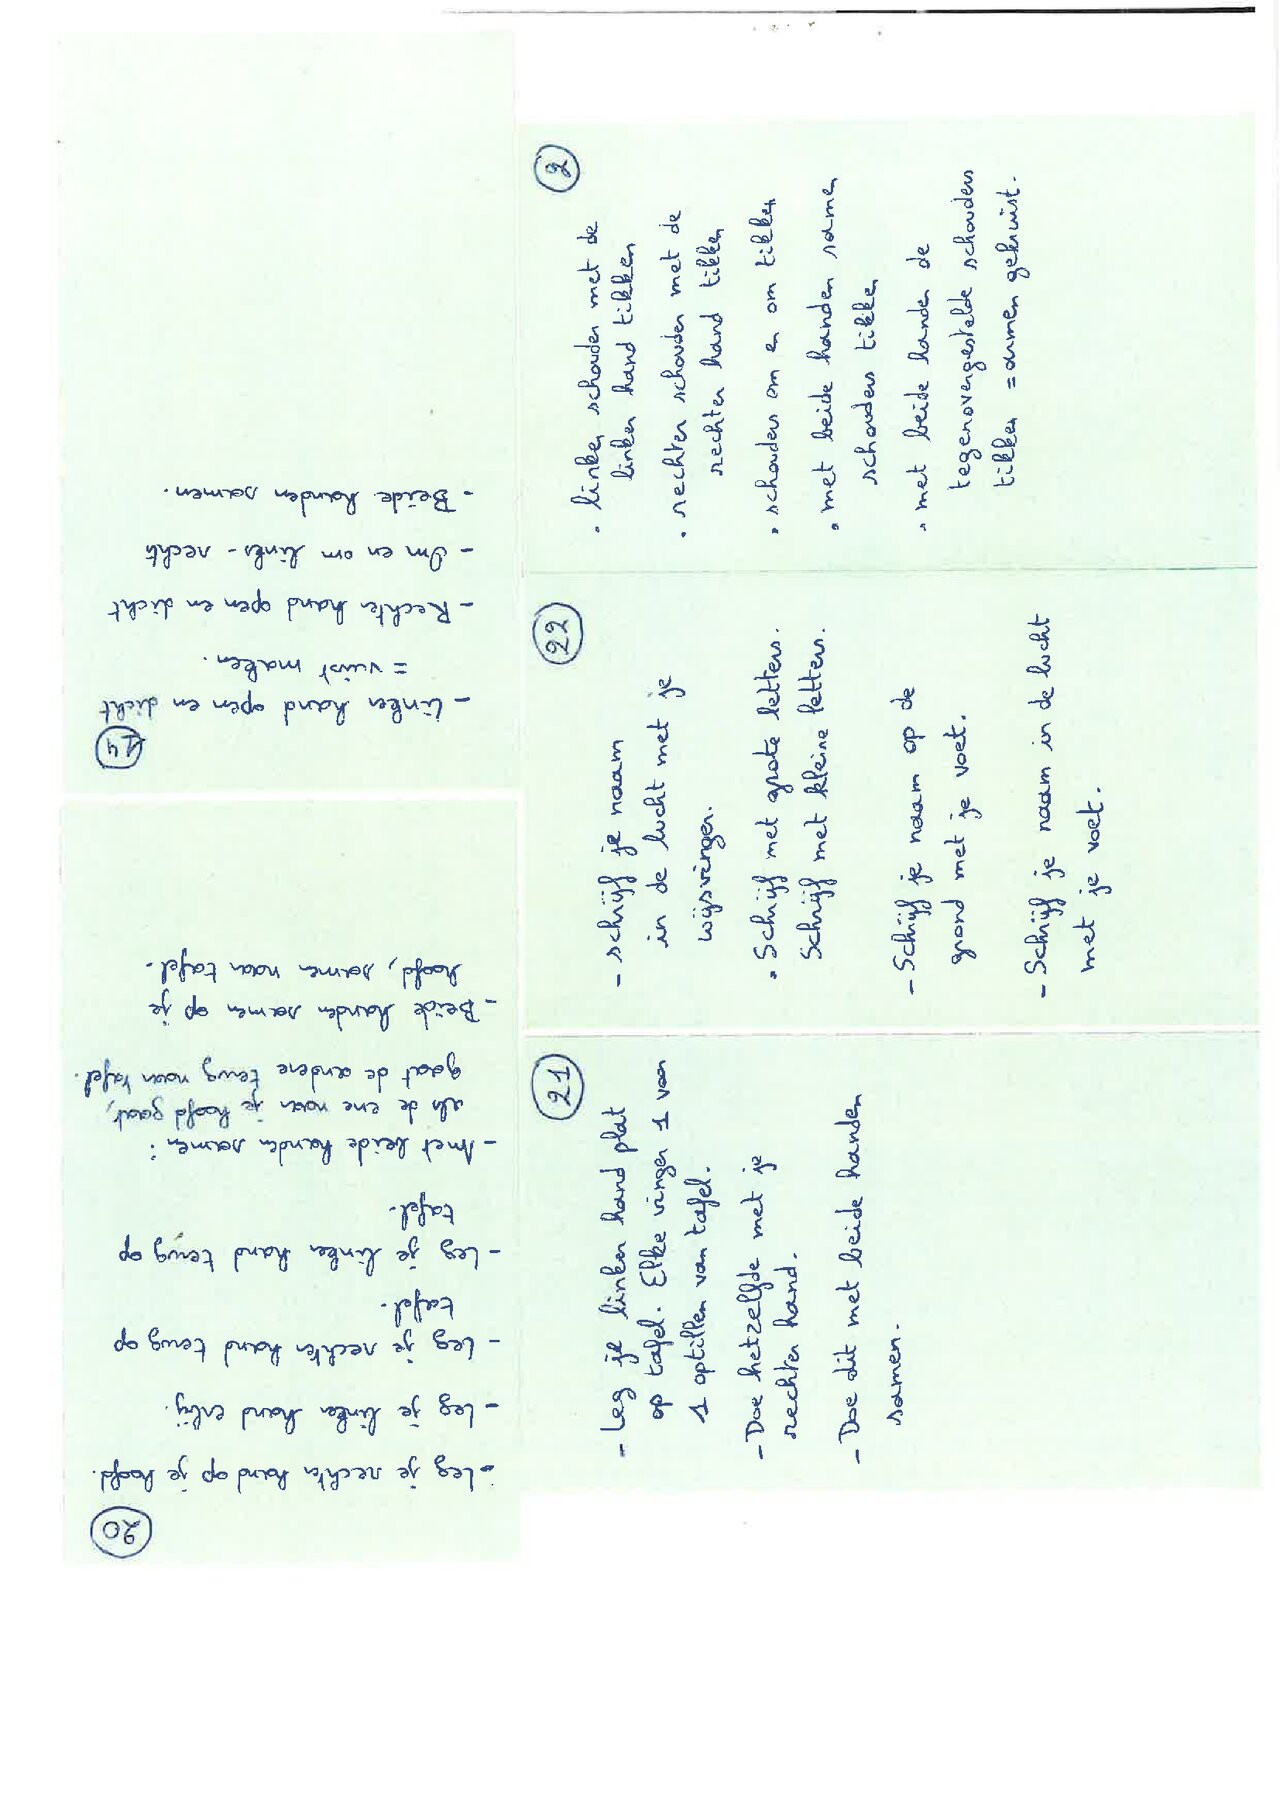 2
. linker schouder met de
linker hand tikken
. rechter schouder met de
rechter hand tikken
. schouders om en om tikken
. met beide handen samen
schouders tikken
. met beide handen de
tegenovergestelde schouders
tikken = armen gekruist.
22
- schrijf je naam
in de lucht met je
wijsvinger.
. Schrijf met grote letters.
Schrijf met kleine letters.
- Schrijf je naam op de
grond met je voet.
- Schrijf je naam in de lucht
met je voet.
21
- Leg je linker hand plat
op tafel. Elke vinger 1 voor
1 optillen van tafel.
- Doe hetzelfde met je
rechter hand.
- Doe dit met beide handen
samen.
14
- Linker hand open en dicht
= vuist maken.
- Rechter hand open en dicht
- Om en om links - rechts
- Beide handen samen.
20
- Leg je rechter hand op je hoofd.
- Leg je linker hand erbij.
- Leg je rechter hand terug op
tafel.
- Leg je linker hand terug op
tafel.
- Met beide handen samen:
als de ene naar je hoofd gaat,
gaat de andere terug naar tafel.
- Beide handen samen op je
hoofd, samen naar tafel.